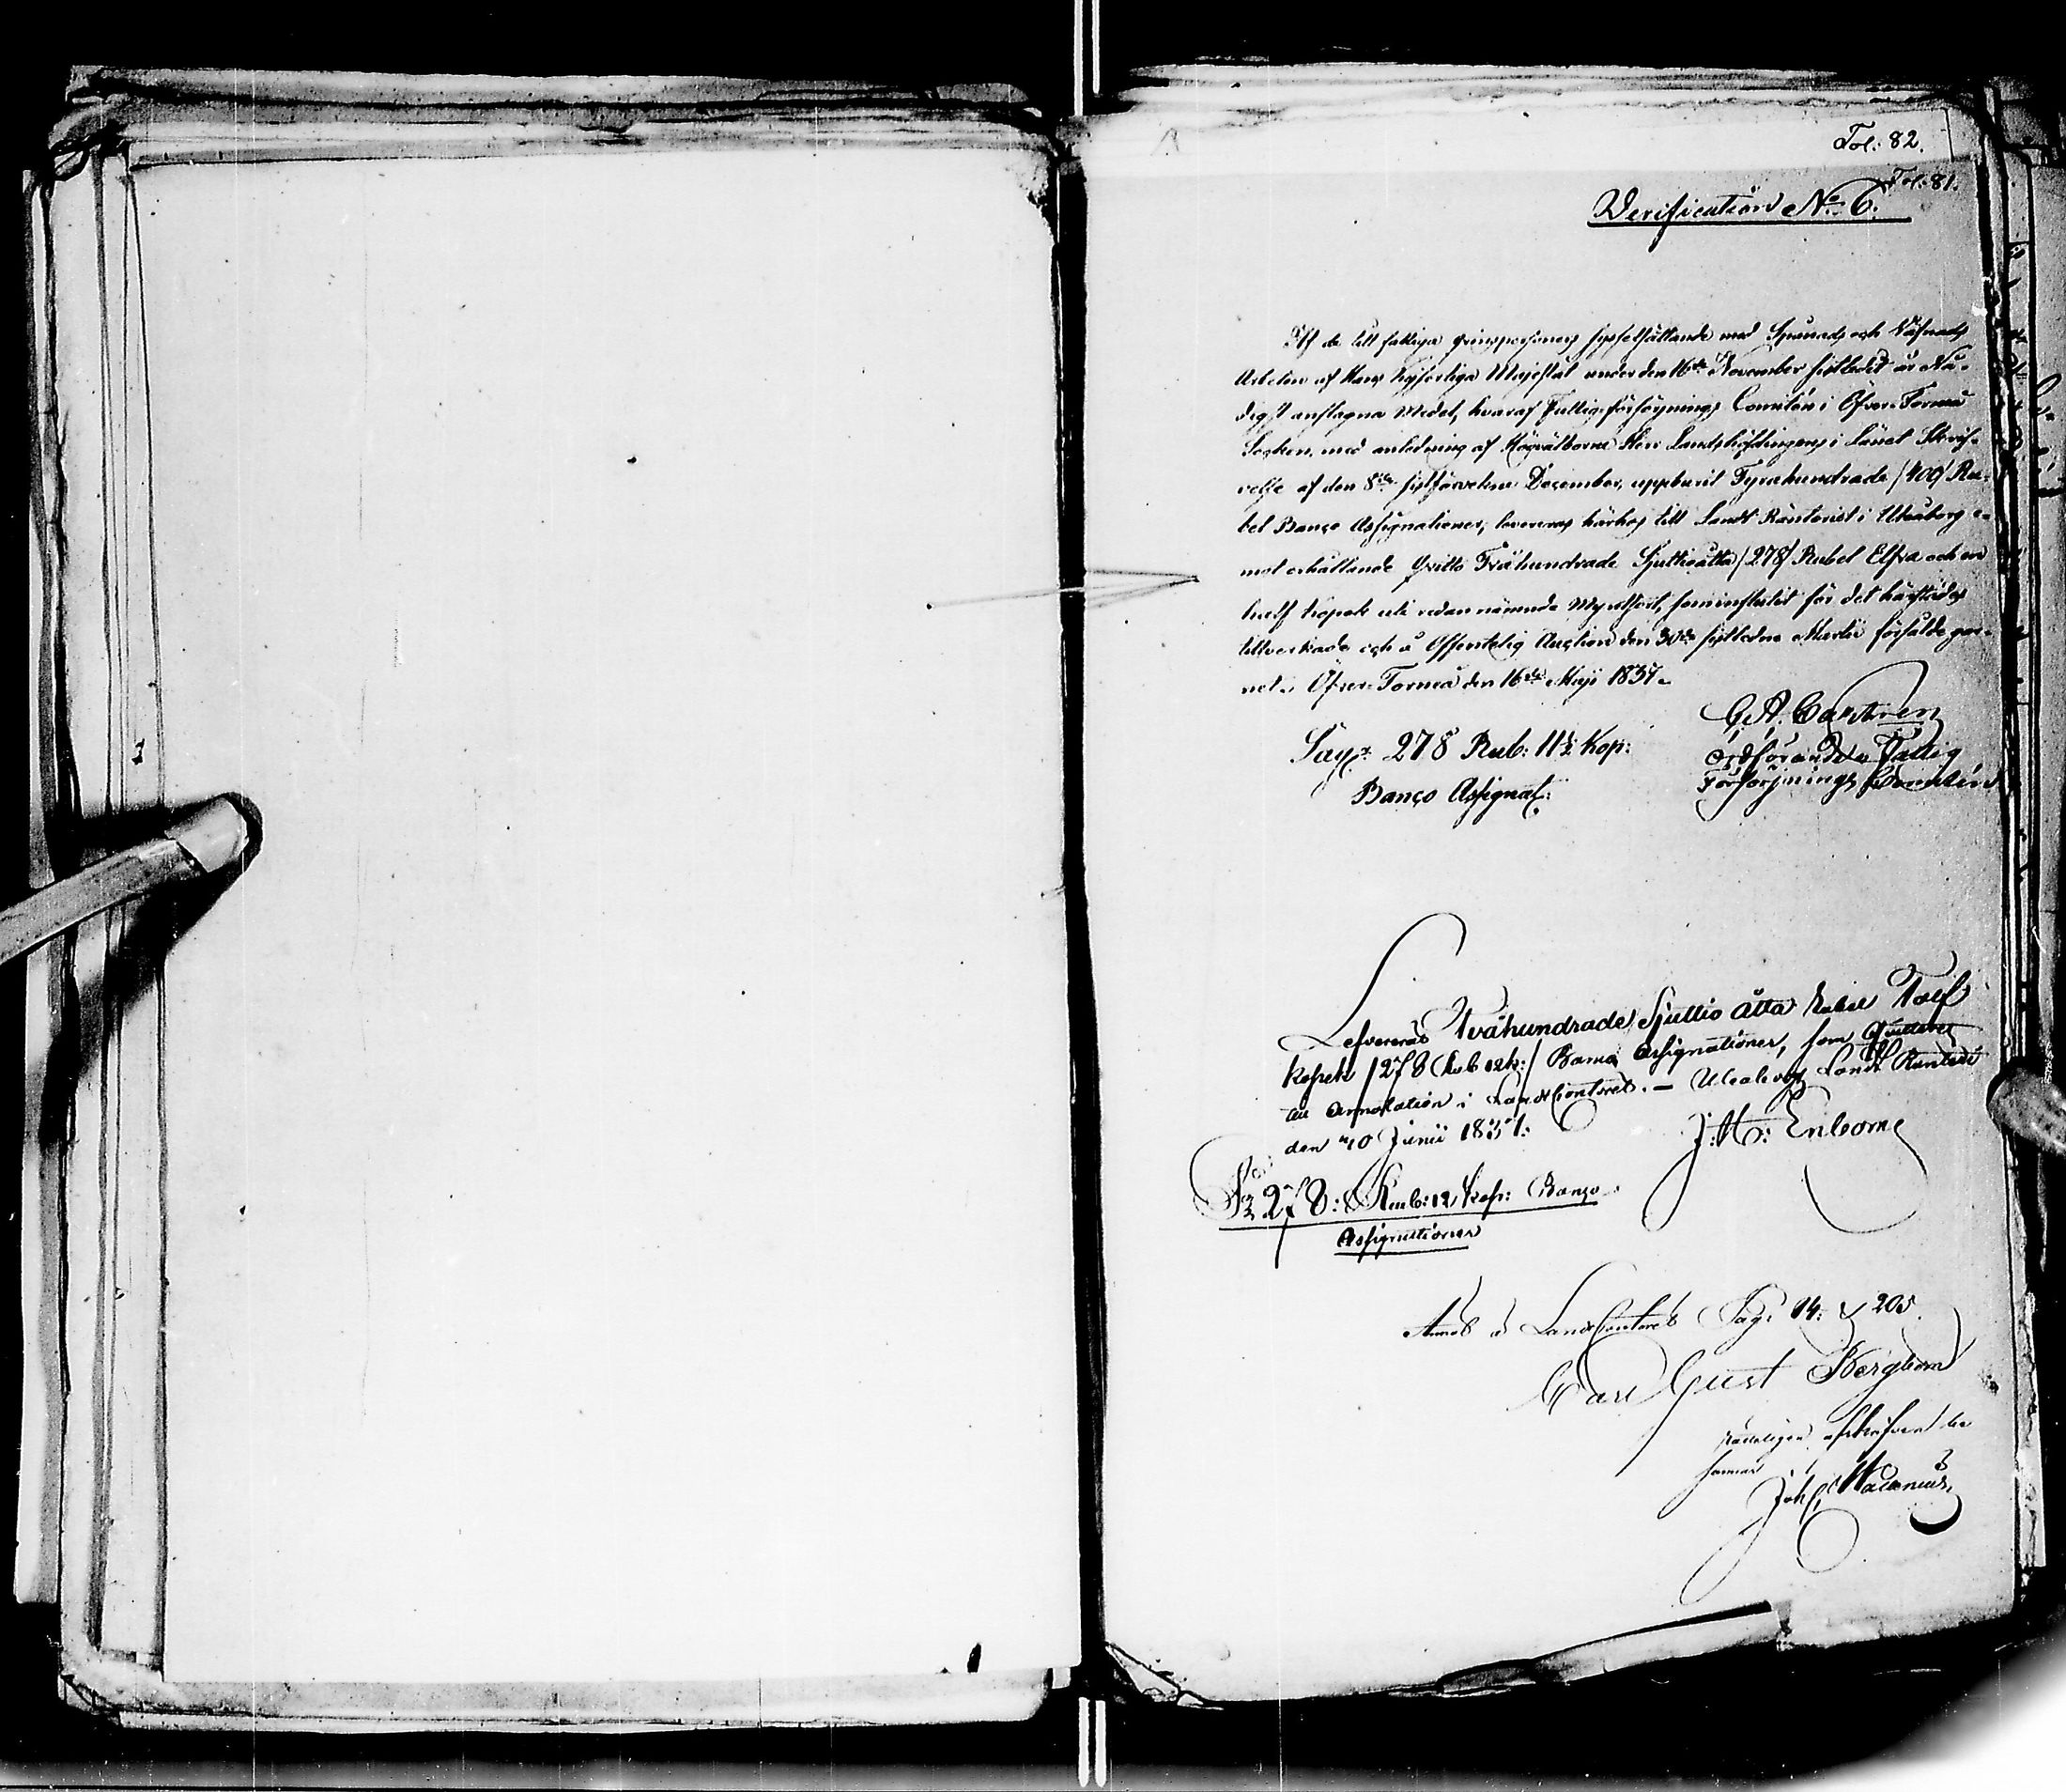 Fol: 82.
Fol: 81.
Verification No 6.
Af de till fattiga qvinspersoners sysselsättande med Spånads och Väfnads
Arbeten af Hans Kejserliga Majestät under den 16de November sistledit år Nå-
digst anslagna Medel, hvaraf Fattigförsörjnings Comitén i Öfver-Torneå
Socken, med anledning af Högvälborne Herr Landshöfdingens i Länet Skrif-
velse af den 8de sistförvekne December, uppburit Fyrahundrade /400/ Ru-
bel Banco Assignationer, levereras härhos till Landt Ränteriet i Uleåborg e-
mot erhållande qvitto Tvåhundrade Sjuttioåtta /278/ Rubel Elfva och en
half kopek uti redan nämnde Myntsort, som influtit för det härstädes
tillverkade och å Offentelig Auction den 30de sistledne Martii försålde gar-
net. Öfver-Torneå den 16de Maji 1837.
G. A. Castrén
Säger 278 Rub: 11½ Kop:
Banco Assignat:
Ordförande i Fattig
Försörjnings Comitén
Lefvereras Tvåhundrade Sjuttio åtta Rubel Tolf
kopek /278 Rub 12 k:/ Banco Assignationer, som Qvitteras
till Annotation i LandsContoret. — Uleåborgs Landt Ränteri
den 10 Junii 1837:
J: H: Enbom
278: Rub: 12 kop: Banco
Assignationer
Annot å LandsContoret Pag: 14: & 205.
Carl Gust Bergbom
Riktigen afskrifvet be
Joh: